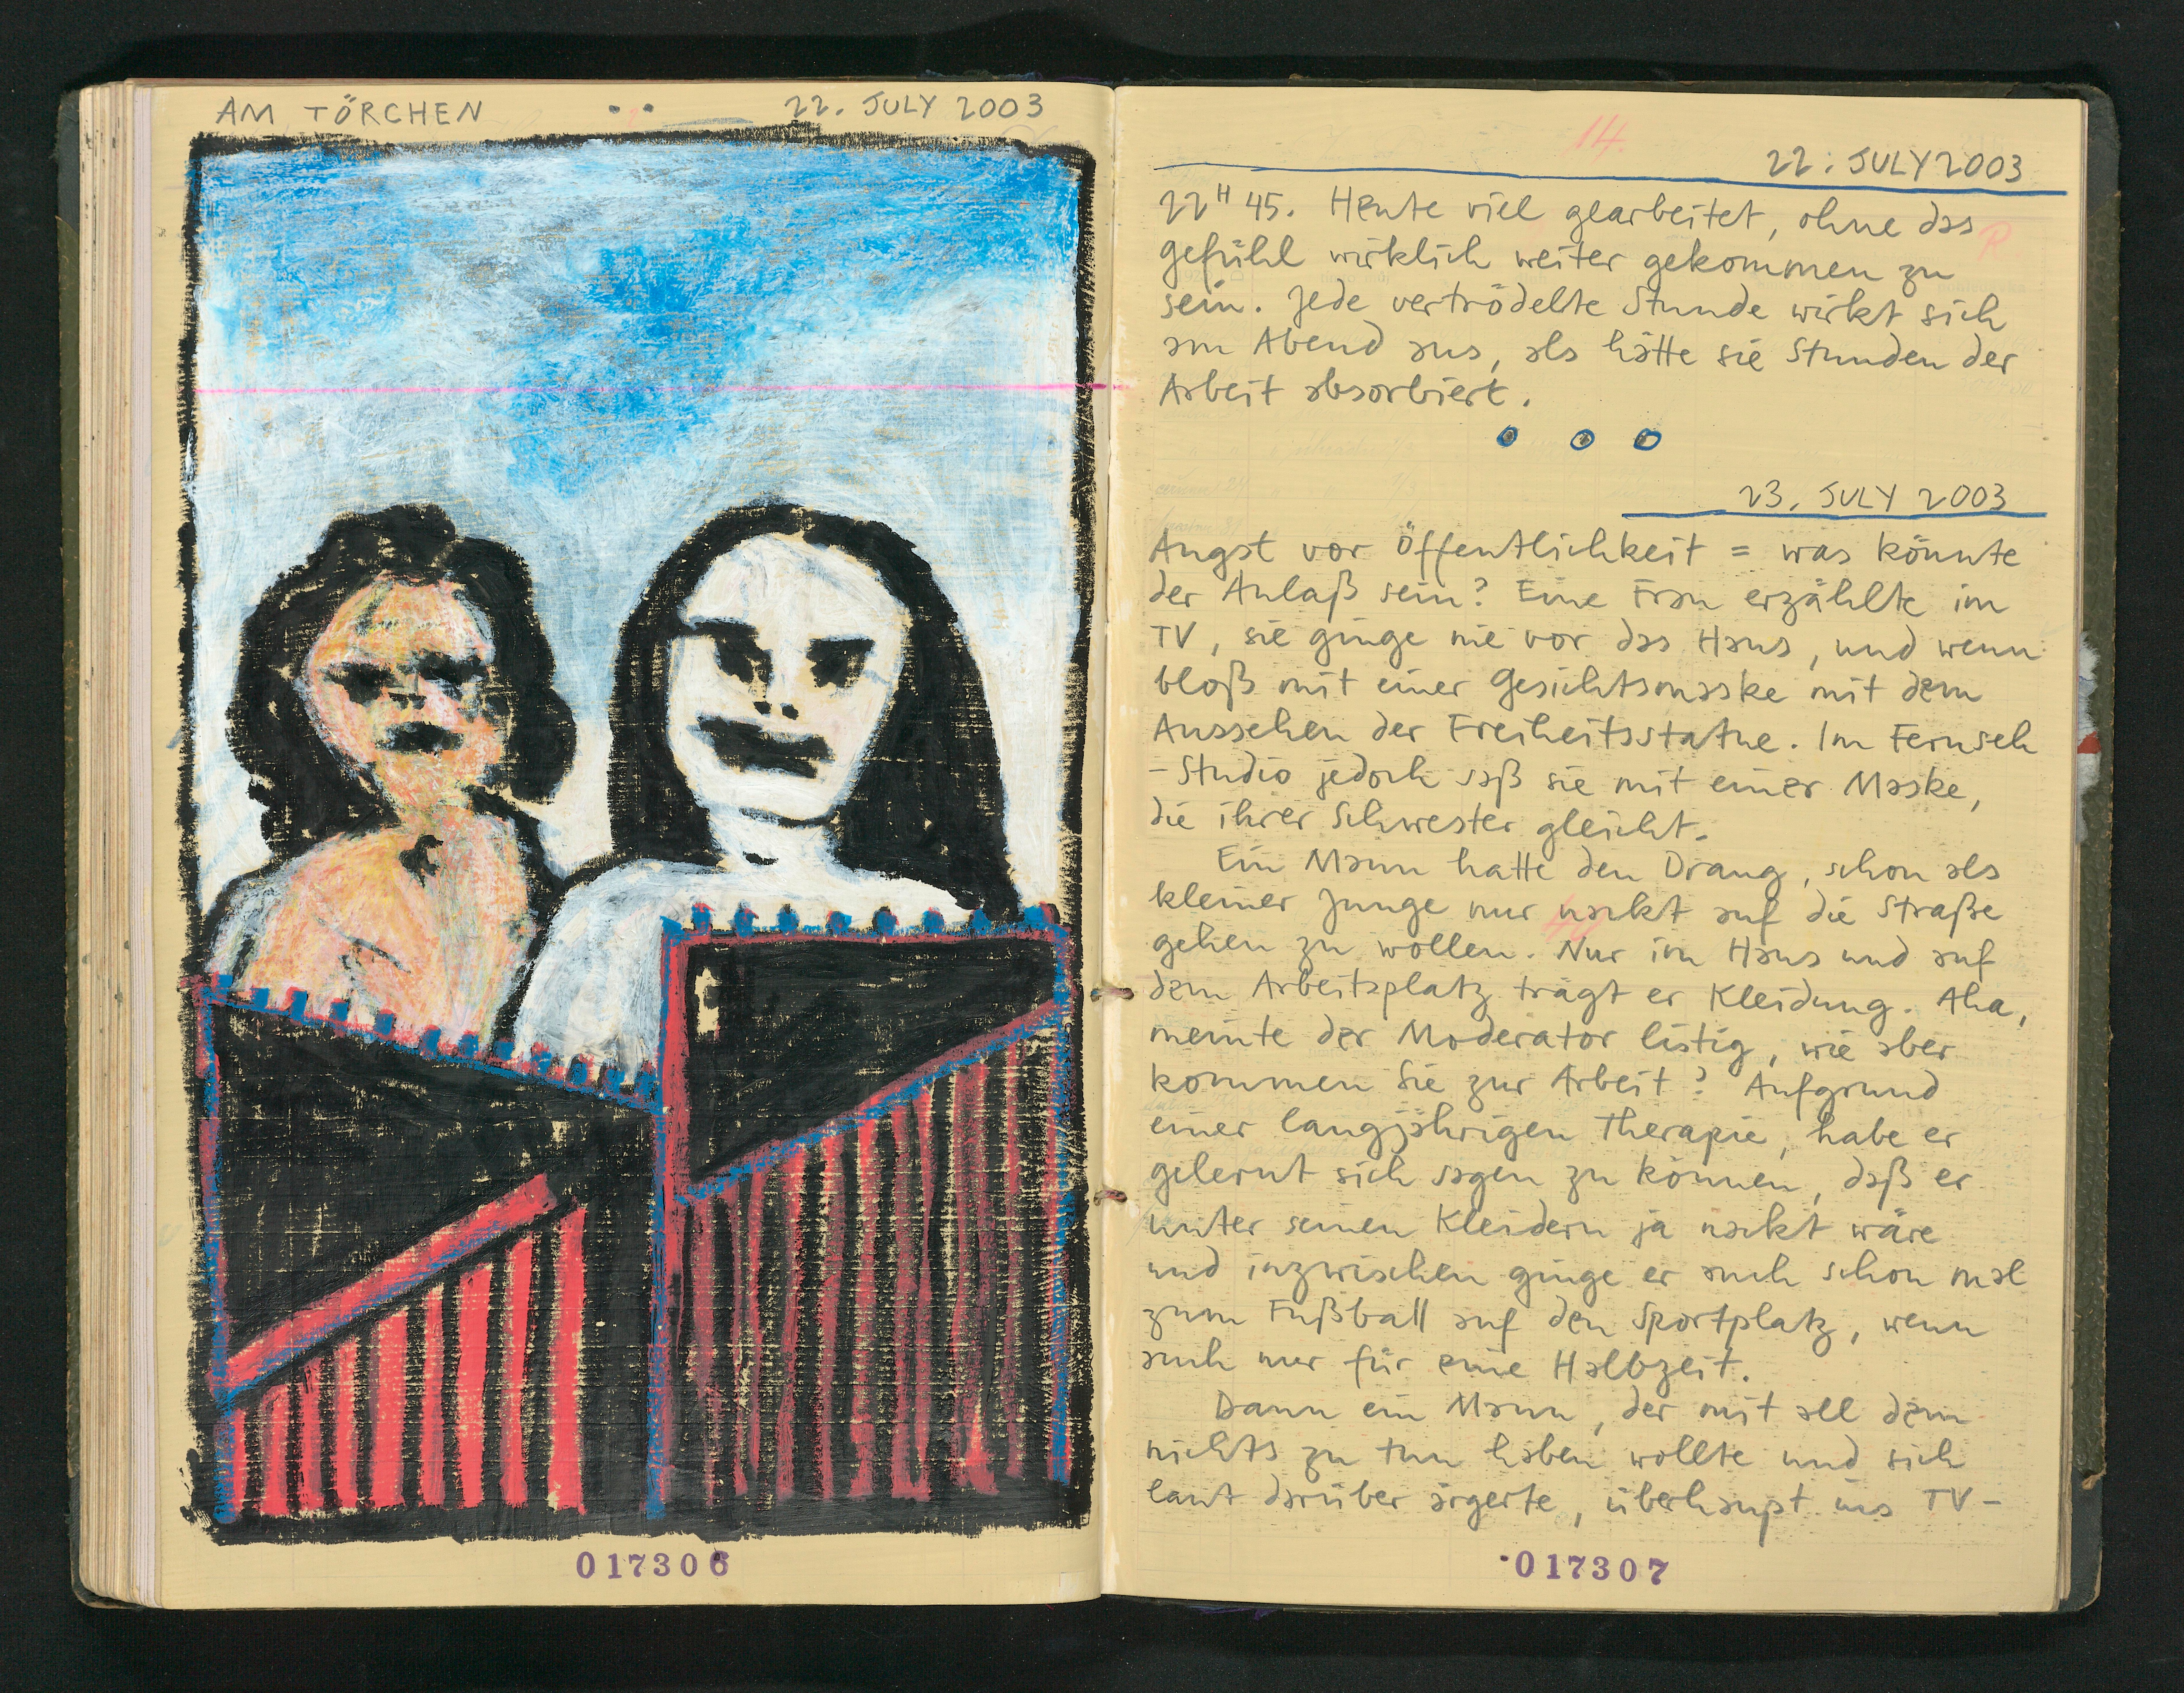 AM TÖRCHEN 22. JULY 2003
017306
14.
22. JULY 2003
22H 45. Heute viel gearbeitet, ohne das
gefühl wirklich weiter gekommen zu
sein. Jede vertrödelte Stunde wirkt sich
am Abend aus, als hätte sie Stunden der
Arbeit absorbiert.
23. JULY 2003
Angst vor Öffentlichkeit = was könnte
der Anlaß sein? Eine Frau erzählte im
TV, sie ginge nie vor das Haus, und wenn
bloß mit einer Gesichtsmaske mit dem
Aussehen der Freiheitsstatue. Im Fernseh
-Studio jedoch saß sie mit einer Maske,
die ihrer Schwester gleicht.
Ein Mann hatte den Drang, schon als
kleiner Junge nur nackt auf die Straße
gehen zu wollen. Nur im Haus und auf
dem Arbeitsplatz trägt er Kleidung. Aha,
meinte der Moderator listig, wie aber
kommen Sie zur Arbeit? Aufgrund
einer langjährigen Therapie, habe er
gelernt sich sagen zu können, daß er
unter seinen Kleidern ja nackt wäre
und inzwischen ginge er auch schon mal
zum Fußball auf den Sportplatz, wenn
auch nur für eine Halbzeit.
Dann ein Mann, der mit all dem
nichts zu tun haben wollte und sich
laut darüber ärgerte, überhaupt ins TV-
017307